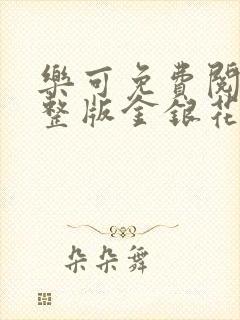 樂可免費閱
整版金銀花
朵朵舞